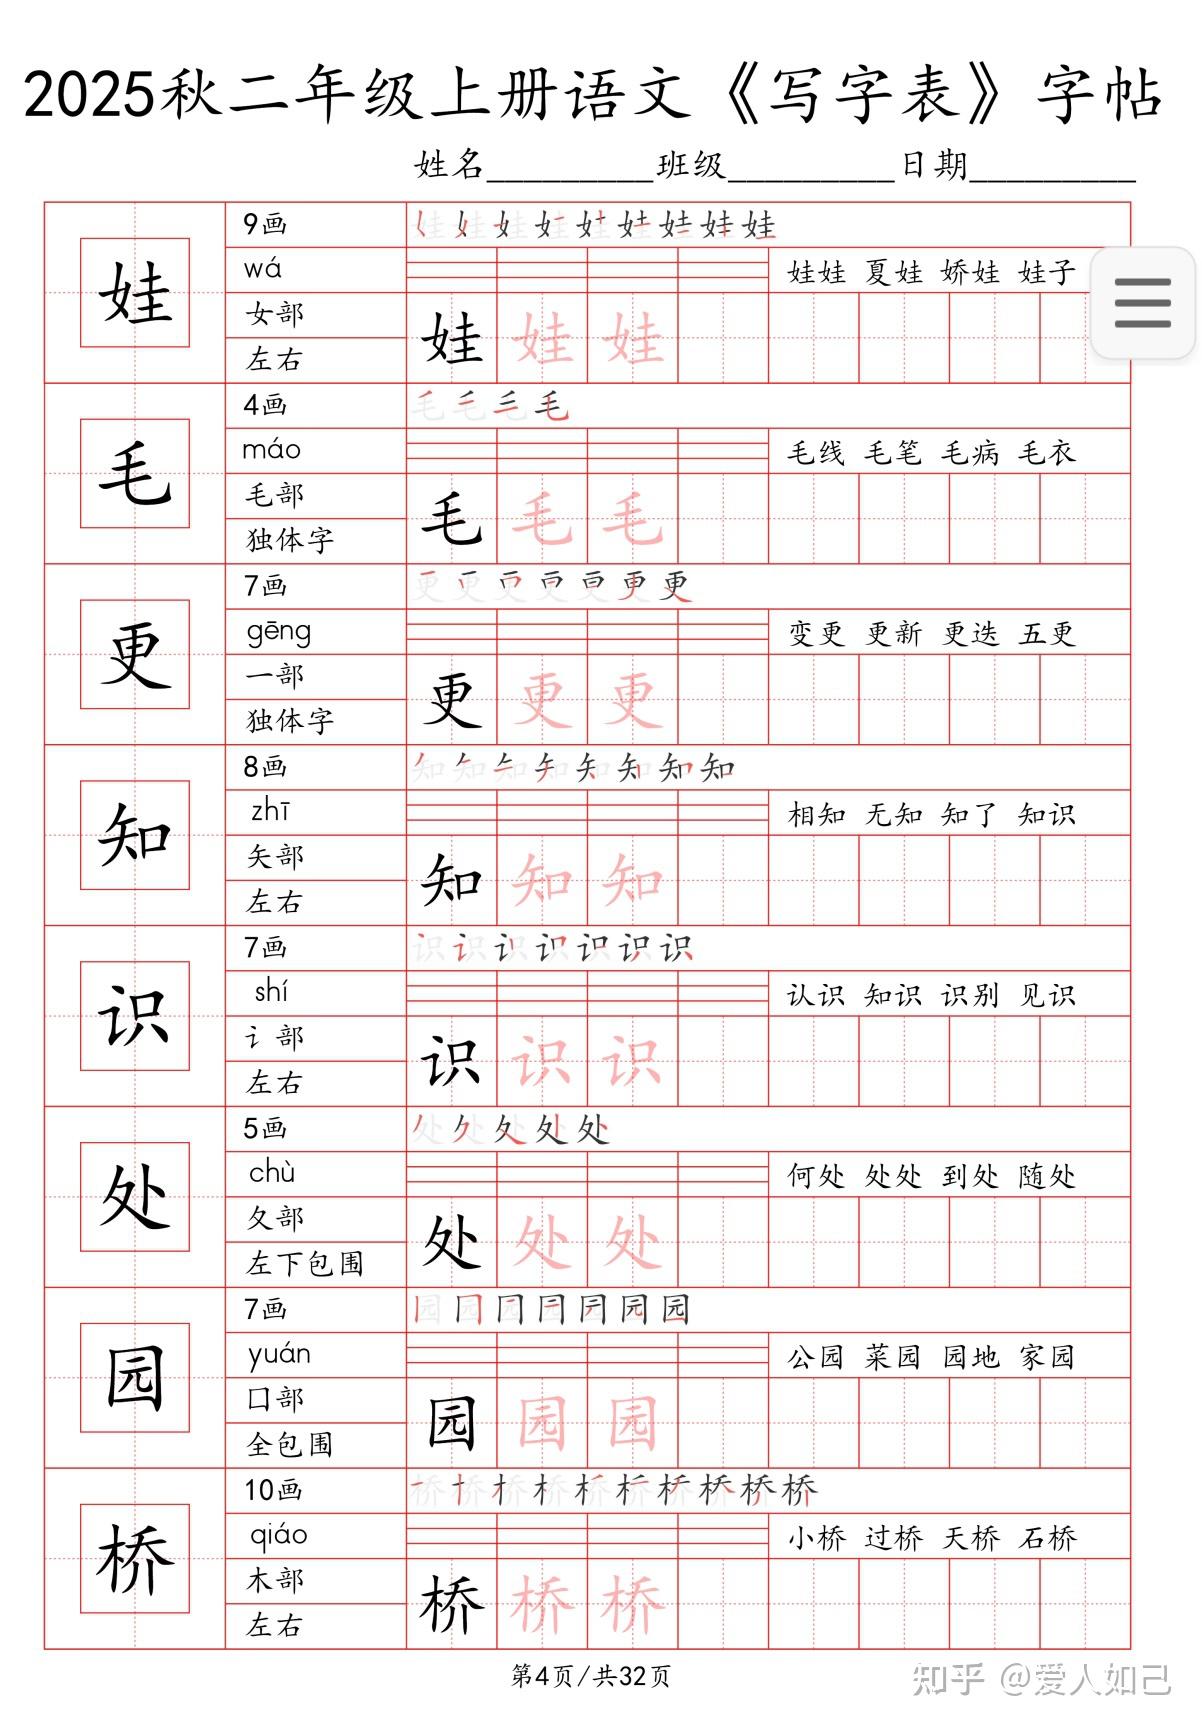 2025秋二年级上册语文《写字表》字帖
姓名_________班级_________日期_________
娃
9画
wá
娃娃 夏娃 娇娃 娃子
女部
左右
娃 娃 娃
毛
4画
máo
毛线 毛笔 毛病 毛衣
毛部
独体字
毛 毛 毛
更
7画
gēng
变更 更新 更迭 五更
一部
独体字
更 更 更
知
8画
zhī
相知 无知 知了 知识
矢部
左右
知 知 知
识
7画
shí
认识 知识 识别 见识
讠部
左右
识 识 识
处
5画
chù
何处 处处 到处 随处
夂部
左下包围
处 处 处
园
7画
yuán
公园 菜园 园地 家园
囗部
全包围
园 园 园
桥
10画
qiáo
小桥 过桥 天桥 石桥
木部
左右
桥 桥 桥
第4页/共32页
知乎 @爱人如己